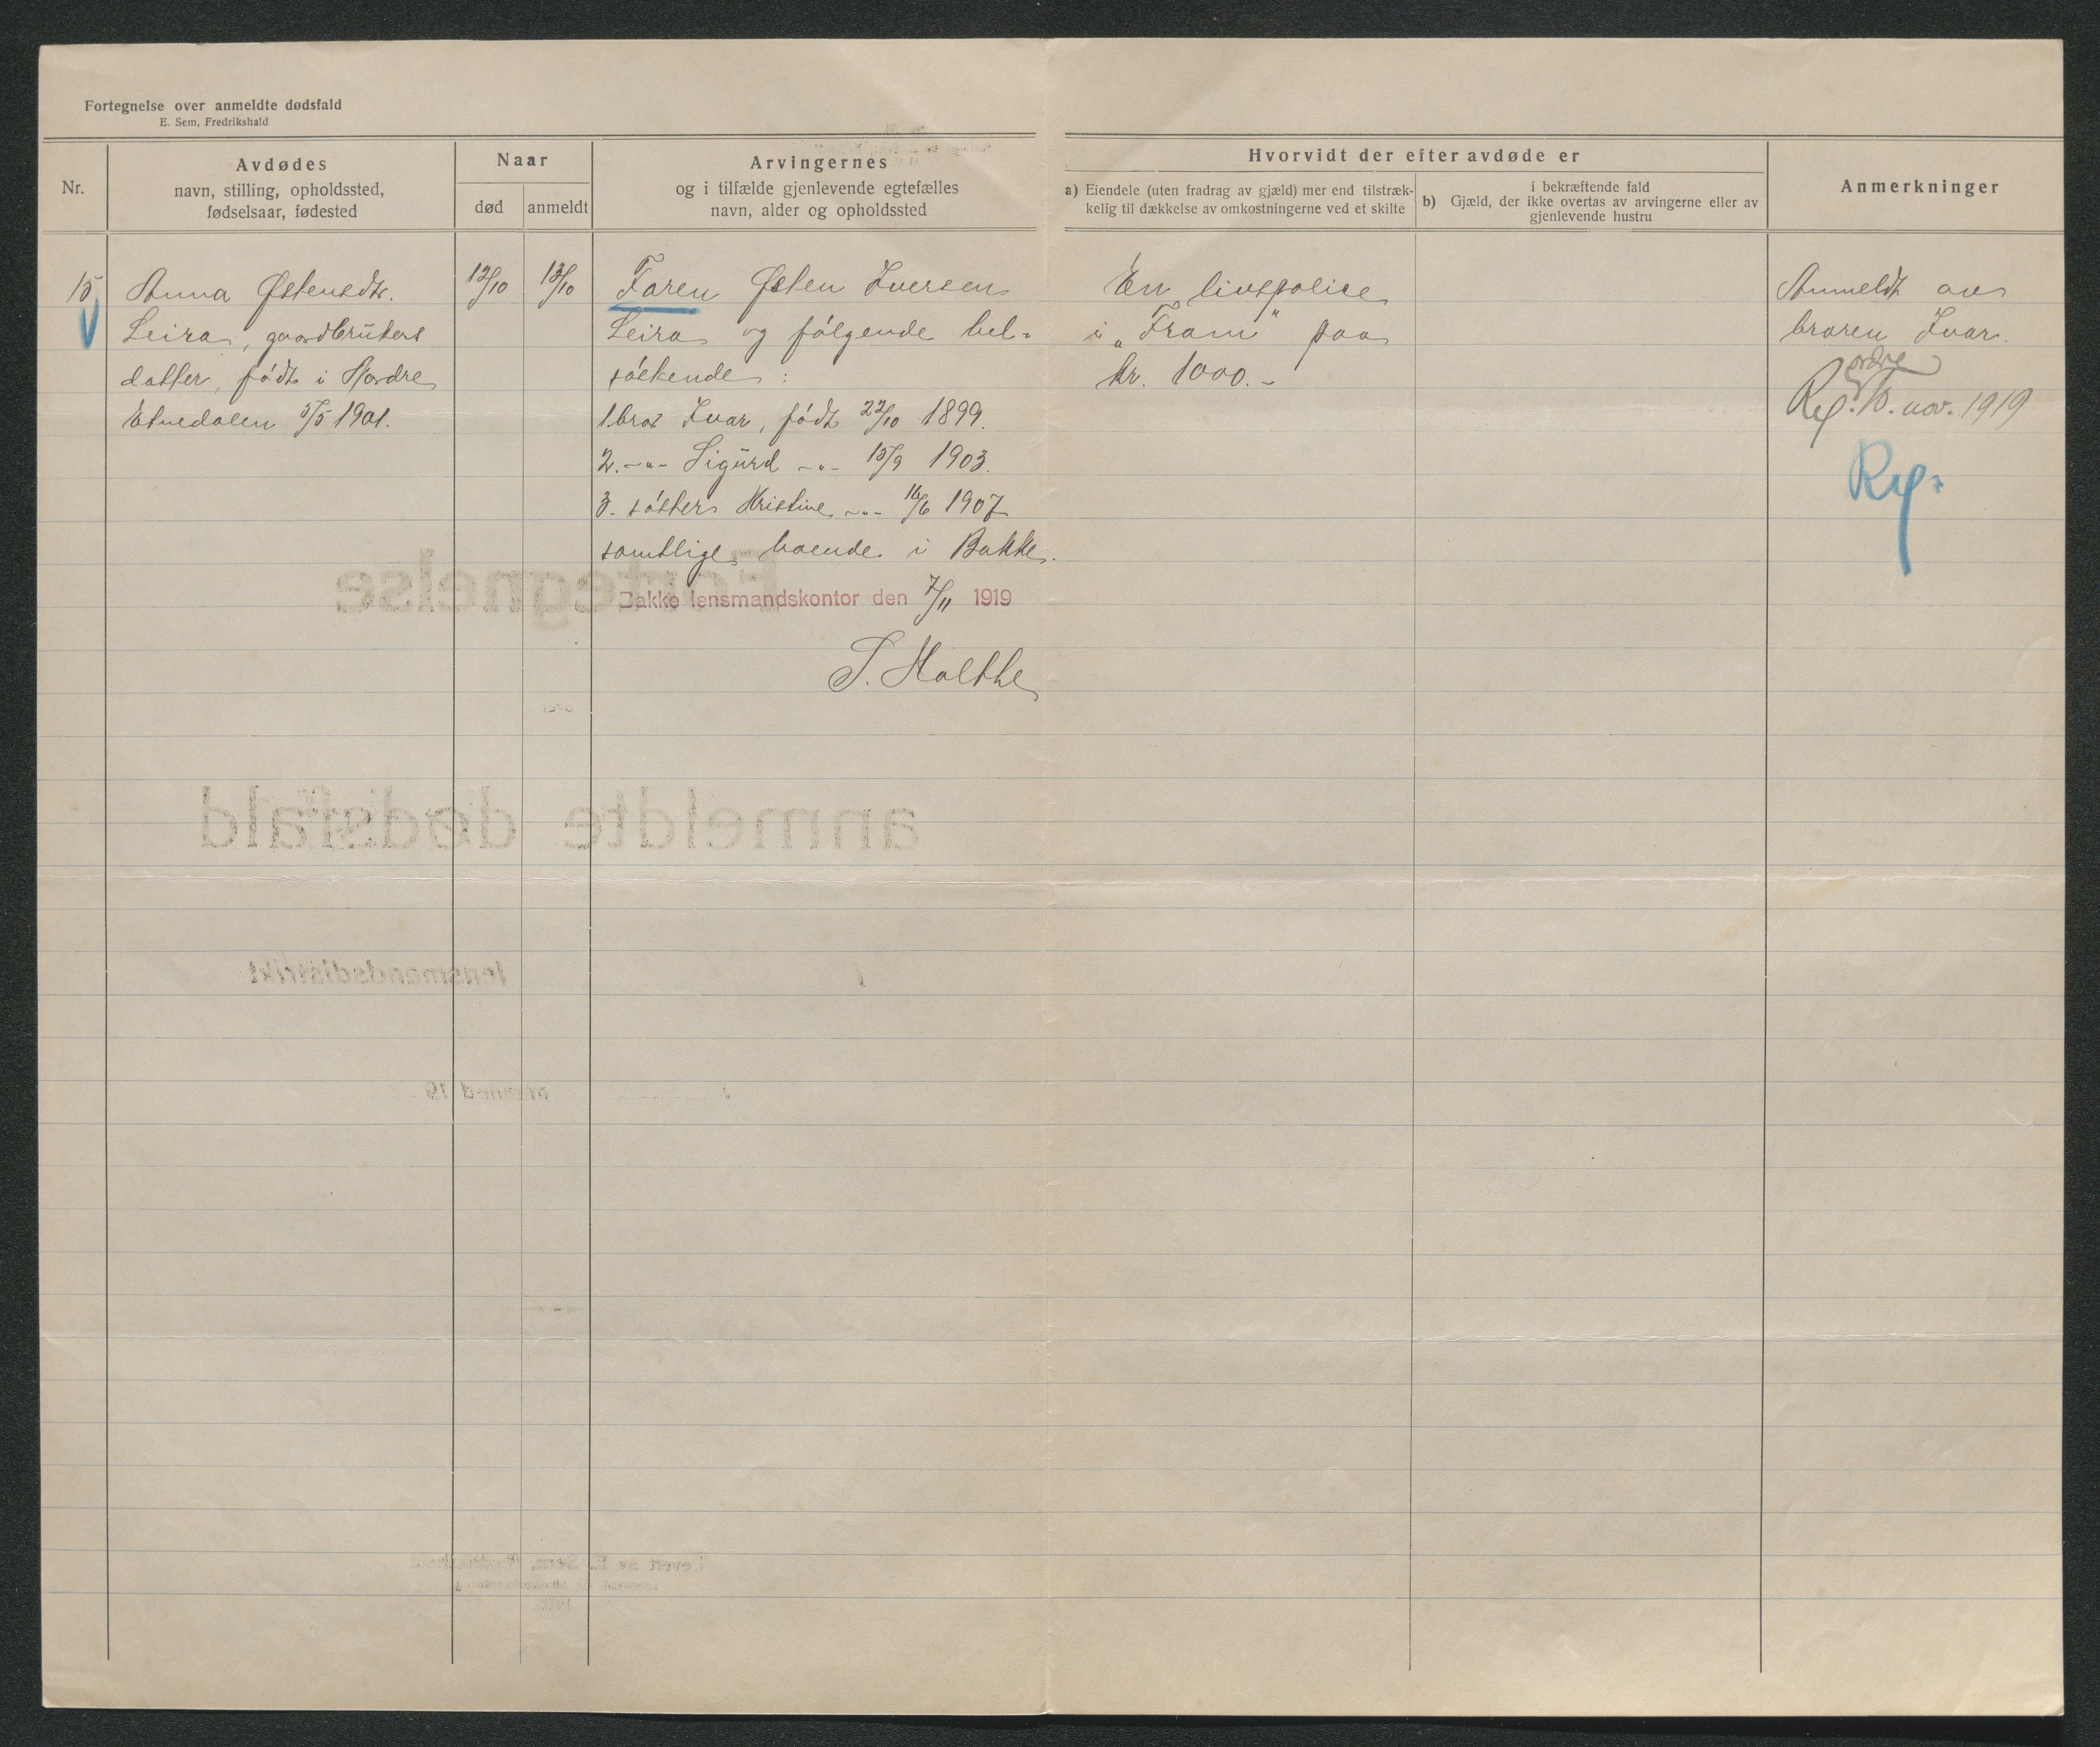 Fortegnelse over anmeldte dødsfald
E. Sem, Fredrikshald
Nr.
Avdødes
navn, stilling, opholdssted,
fødselsaar, fødested
Naar
død
anmeldt
Arvingernes
og i tilfælde gjenlevende egtefælles
navn, alder og opholdssted
Hvorvidt der efter avdøde er
a) Eiendele (uten fradrag av gjæld) mer end tilstræk-
kelig til dækkelse av omkostningerne ved et skifte
i bekræftende fald
b) Gjæld, der ikke overtas av arvingerne eller av
gjenlevende hustru
Anmerkninger
15
Anna Østensdtr.
Leira, gaardbrukers
datter, født i Nordre
Etnedalen 5/5 1901.
12/10
13/10
Faren Østen Iversen
Leira og følgende hel-
søskende:
1 bror Ivar, født 22/10 1899.
2. -"- Sigurd -"- 15/9 1903.
3. søster Kristine -"- 16/6 1907
samtlige boende i Bakke.
Bakke lensmandskontor den 7/11 1919
S. Holthe
En livspolice
i „Fram" paa
kr. 1000.-
Anmeldt av
broren Ivar.
ordre
Rep. 10. nov. 1919
Rep.
Fortegnelse
anmeldte dødsfald
lensmandsdistrikt